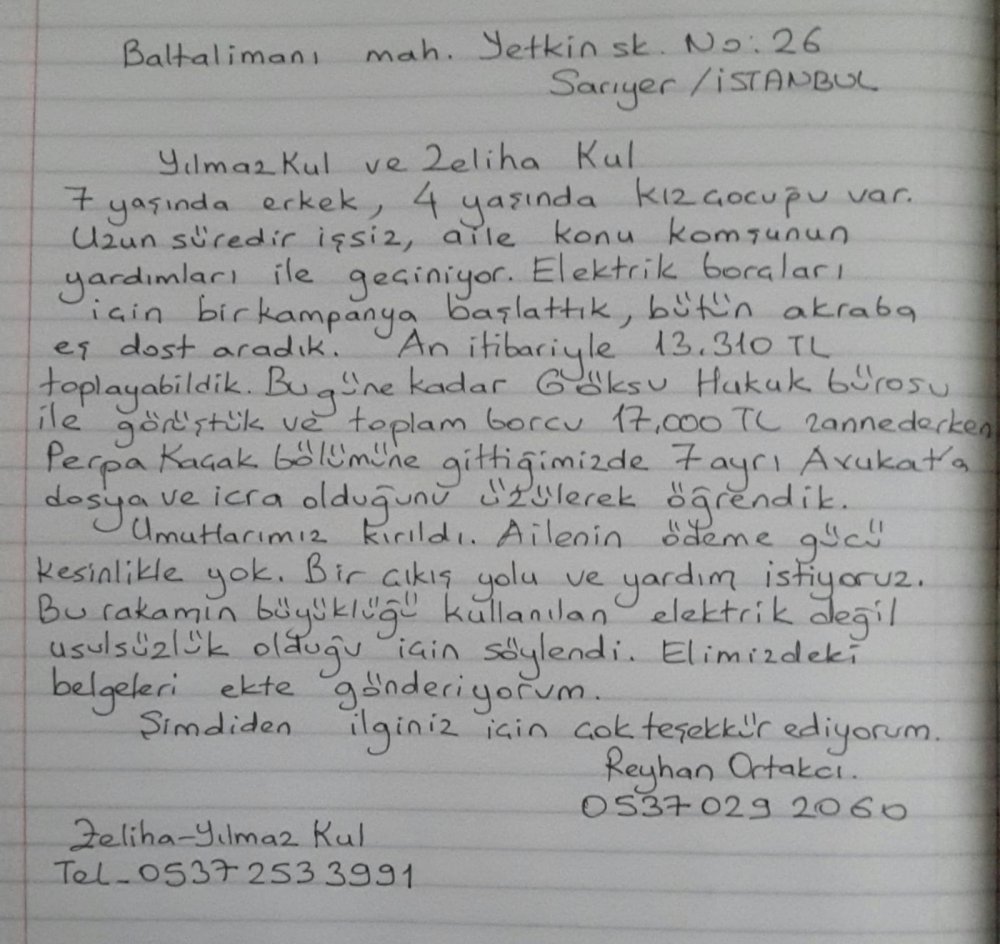 Baltalimanı mah. Yetkin sk. No: 26
Sarıyer / İSTANBUL
Yılmaz Kul ve Zeliha Kul
7 yaşında erkek, 4 yaşında kız çocuğu var.
Uzun süredir işsiz, aile konu komşunun
yardımları ile geçiniyor. Elektrik borçları
için bir kampanya başlattık, bütün akraba
eş dost aradık. An itibariyle 13.310 TL
toplayabildik. Bu güne kadar Göksu Hukuk bürosu
ile görüştük ve toplam borcu 17,000 TL zannederken
Perpa Kaçak bölümüne gittiğimizde 7 ayrı Avukat'a
dosya ve icra olduğunu üzülerek öğrendik.
Umutlarımız kırıldı. Ailenin ödeme gücü
kesinlikle yok. Bir çıkış yolu ve yardım istiyoruz.
Bu rakamın büyüklüğü kullanılan elektrik değil
usulsüzlük olduğu için söylendi. Elimizdeki
belgeleri ekte gönderiyorum.
Şimdiden ilginiz için çok teşekkür ediyorum.
Reyhan Ortakcı.
0537 029 2060
Zeliha-Yılmaz Kul
Tel_0537 253 3991